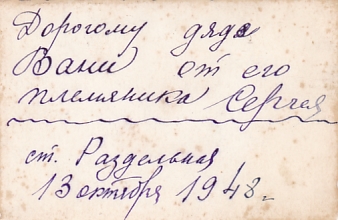 Дорогому дяде
Вани от его
племяника Сергея
ст. Раздельная
13 октября 1948 г.